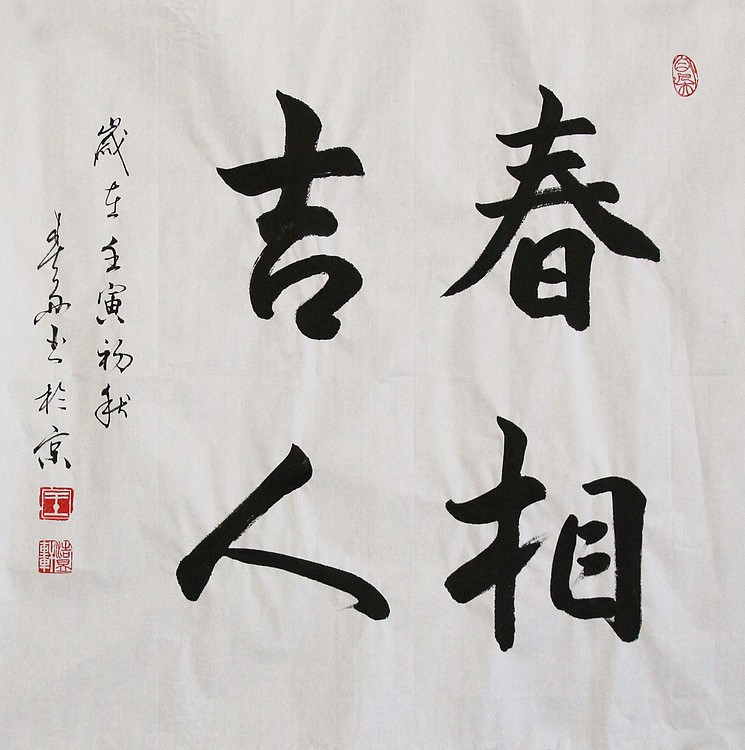 春相
吉人
歲在壬寅初秋
書於京